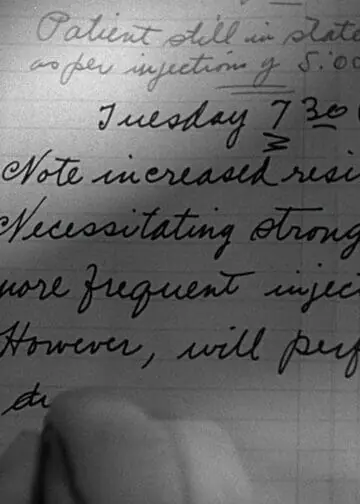 Patient still in state
as per injection of 5:00
Tuesday 7 30
Note increased resi
Necessitating strong
more frequent injec
However, will perf
du